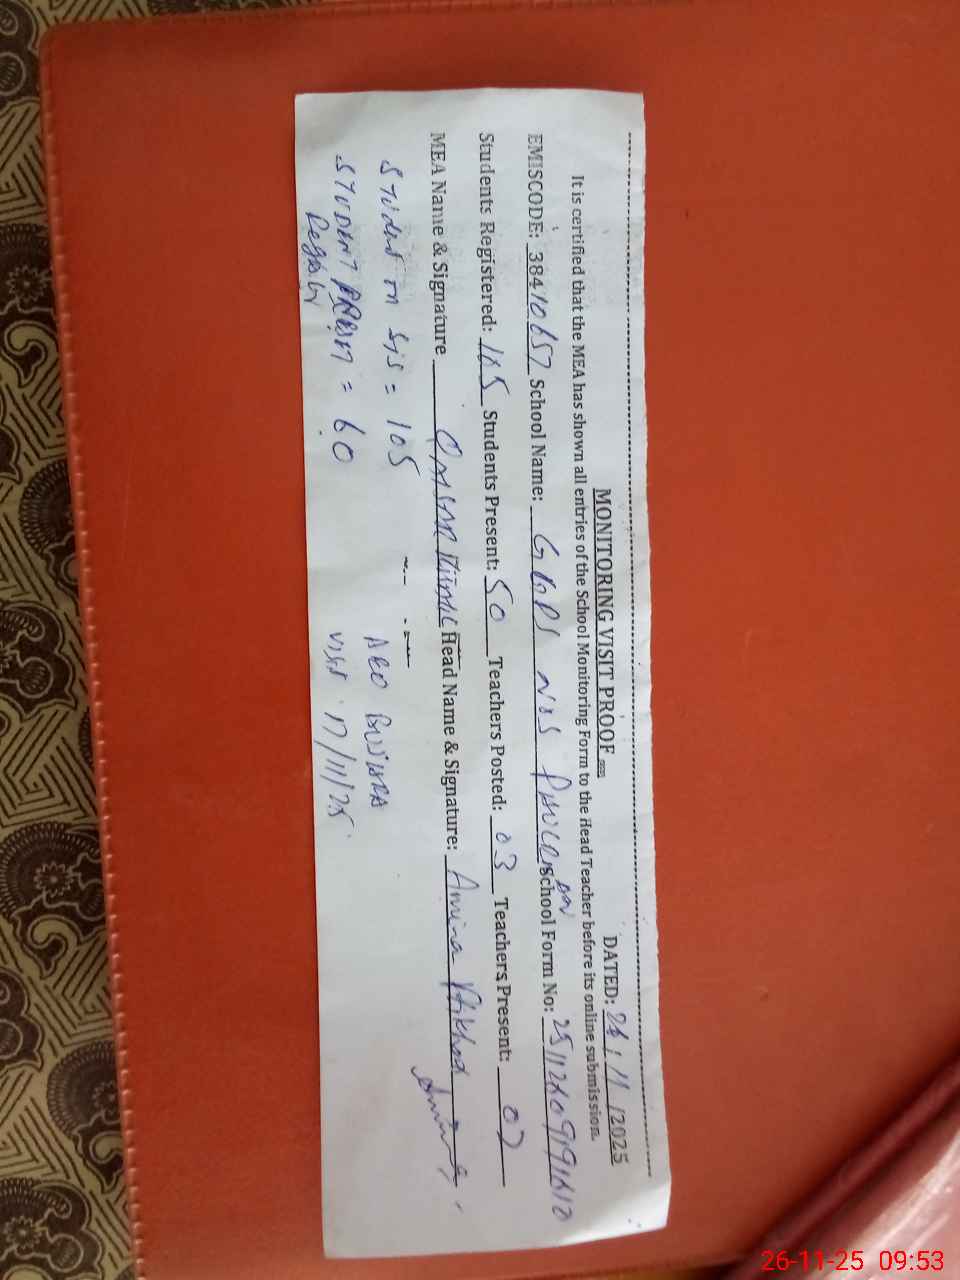 MONITORING VISIT PROOF
DATED: 26/11/2025
It is certified that the MEA has shown all entries of the School Monitoring Form to the Head Teacher before its online submission.
EMISCODE: 38410657 School Name: GGPS School Form No:
Students Registered: 105 Students Present: 50 Teachers Posted: 03 Teachers Present: 02
MEA Name & Signature Head Name & Signature: Amina
Student on Sis = 105
STUDENT = 60
AEO BUSHRA
visit 17/11/25
26-11-25 09:53